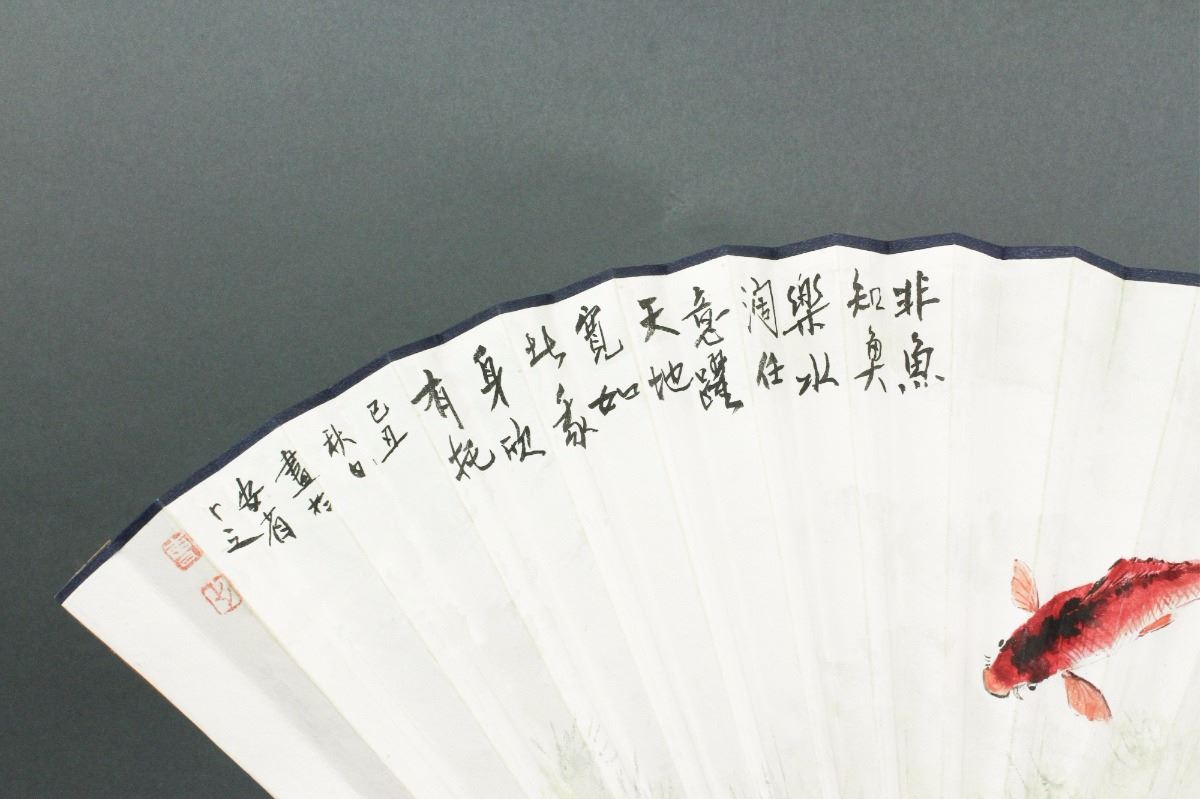 非魚
知魚
樂水
濶任
意躍
天地
寬如
此
身欣
有托
己丑
秋日
畫於
安省